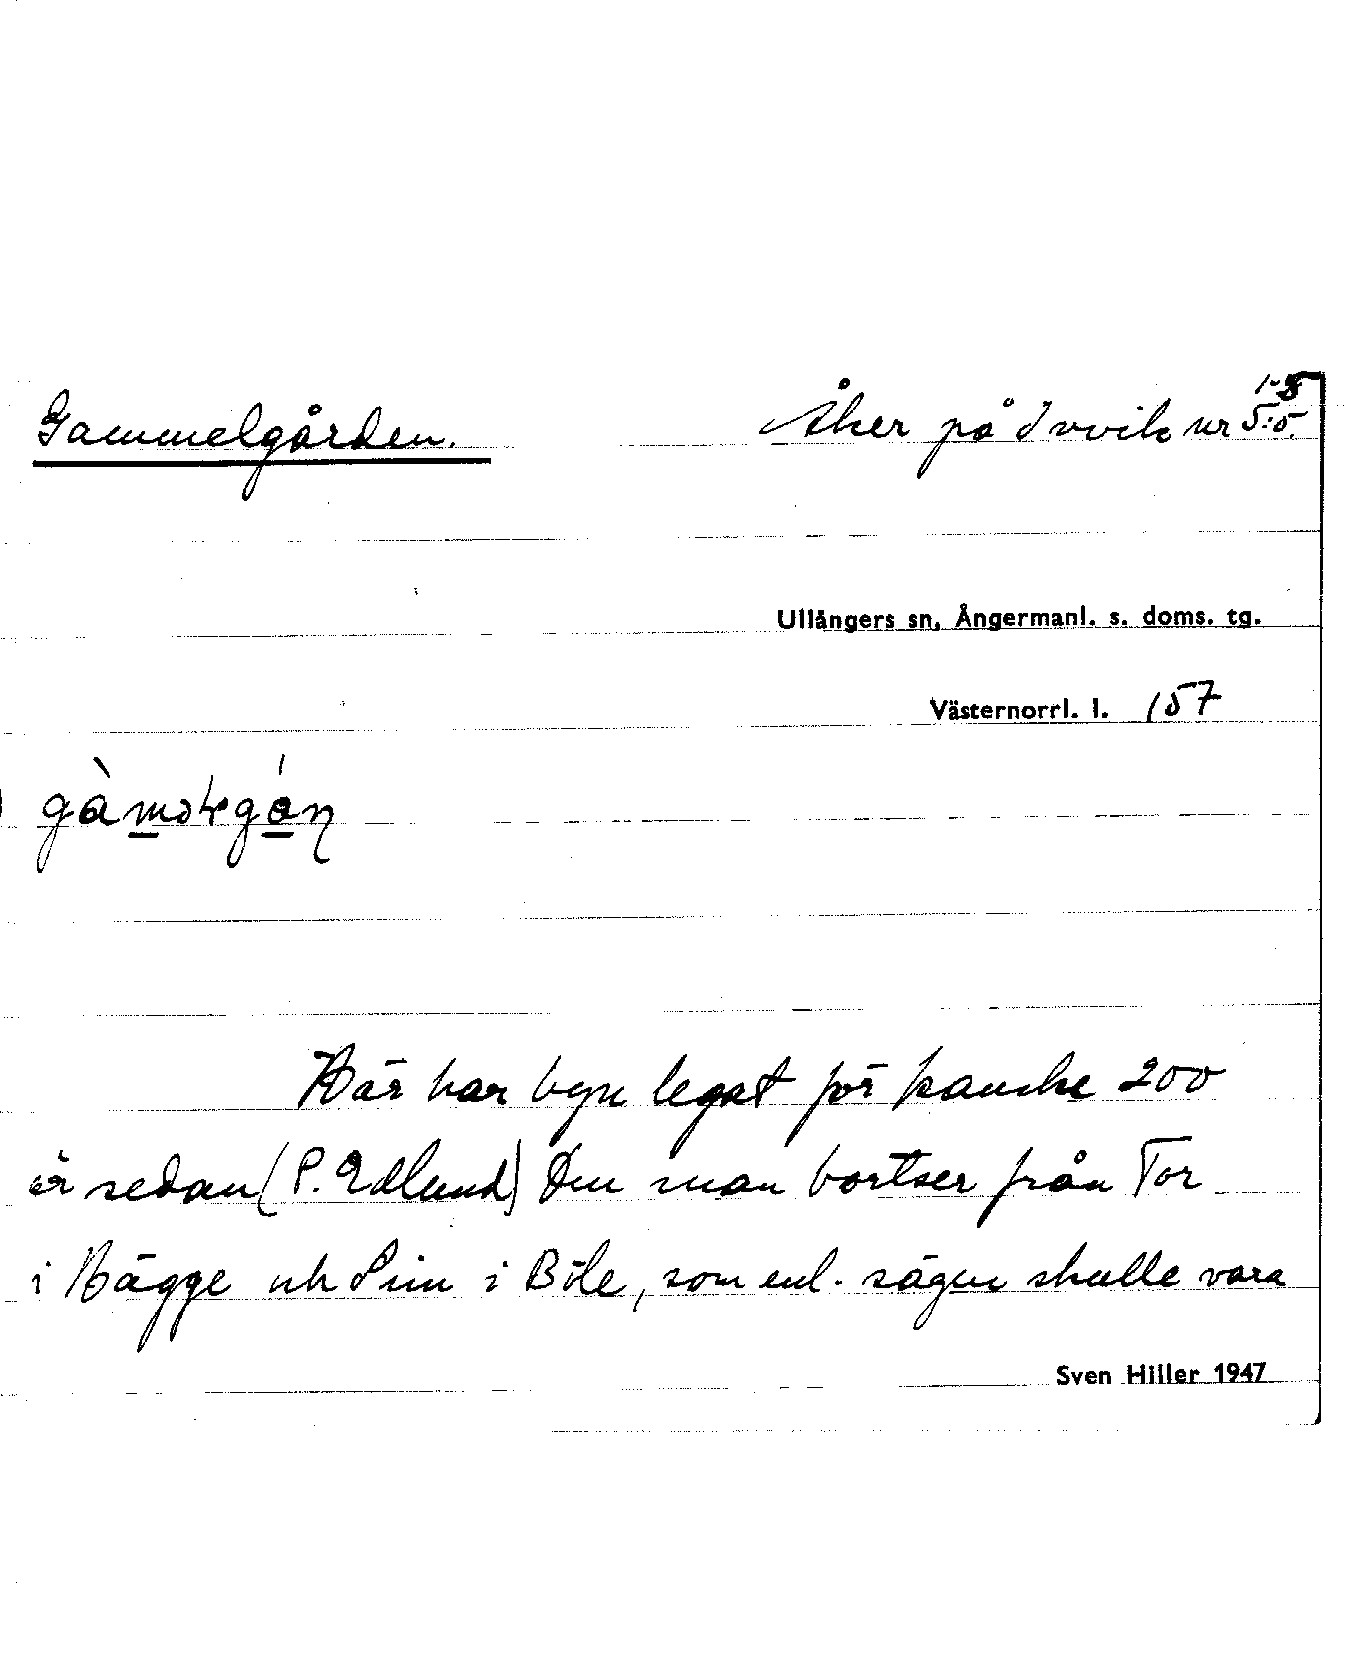 Gammelgården.
Åker på Invik nr 5:5.
Ullångers sn, Ångermanl. s. doms. tg.
Västernorrl. l. 157
Här har byn legat för kanske 200
år sedan (P. Edlund) Om man bortser från Tor
i Hägge och Sim i Böle, som enl. sägen skulle vara
Sven Hiller 1947